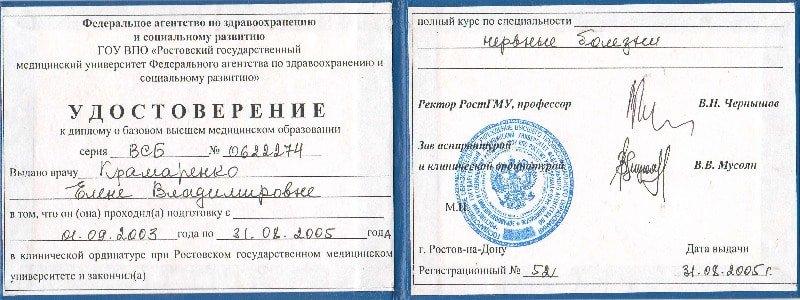 Федеральное агентство по здравоохранению
и социальному развитию
ГОУ ВПО «Ростовский государственный
медицинский университет Федерального агентства по здравоохранению и
социальному развитию»
УДОСТОВЕРЕНИЕ
к диплому о базовом высшем медицинском образовании
серия ВСБ № 0622274
Выдано врачу Крамаренко
Елене Владимировне
в том, что он (она) проходил(а) подготовку с
01.09.2003 года по 31.08.2005 год
в клинической ординатуре при Ростовском государственном медицинском
университете и закончил(а)
полный курс по специальности
нервные болезни
Ректор РостГМУ, профессор В.Н. Чернышов
Зав аспирантурой
и клинической ординатурой В.В. Мусолян
М.П.
г. Ростов-на-Дону Дата выдачи
Регистрационный № 521 31.08.2005г.